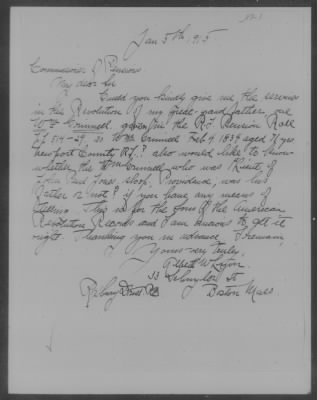 Jan 5th 1915
Commissioner of Pensions
My dear Sir
Could you kindly give me the services
in the Revolution of my great grandfather, one
Wm Grinnell, given in the R.I. Pension Roll
of 514-29, as Wm Grinnell Feb 9 1834 aged 71 yrs
Newport County R.I.? also would like to know
whether the Wm Grinnell who was Lieut of
John Paul Jones sloop, Providence, was his
Father or not? if you have any means of
telling. This is for the Sons of the American
Revolution Records and I am anxious to get it
right. Thanking you in advance I remain
Yours very truly,
Albert W
33 Schuyler St
Roxbury Boston Mass